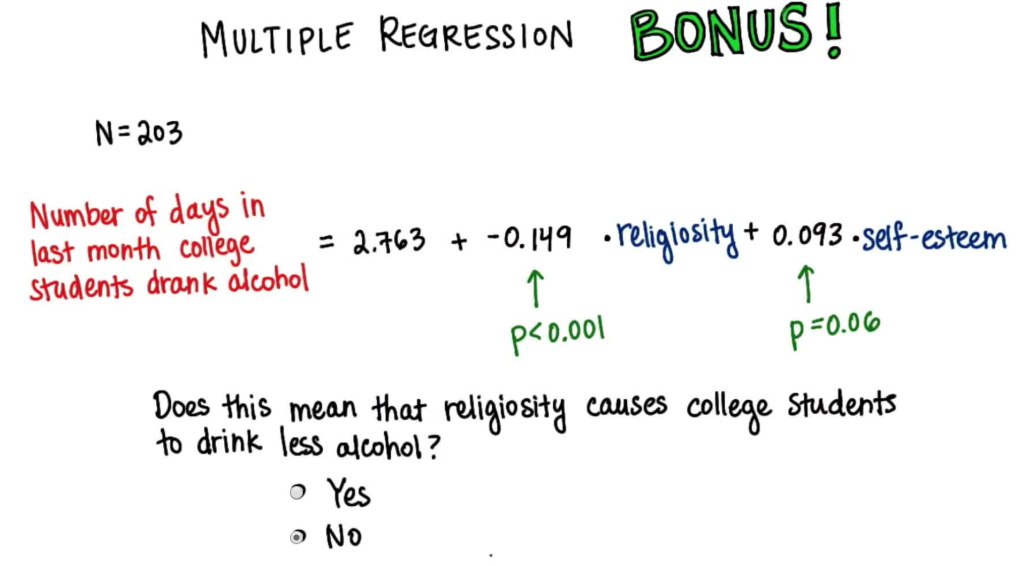 MULTIPLE REGRESSION BONUS!
N=203
Number of days in
last month college
students drank alcohol
= 2.763 + -0.149 · religiosity + 0.093 · self-esteem
p<0.001
p=0.06
Does this mean that religiosity causes college students
to drink less alcohol?
Yes
No